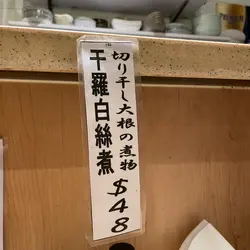 切り干し大根の煮物 $48
干羅白絲煮